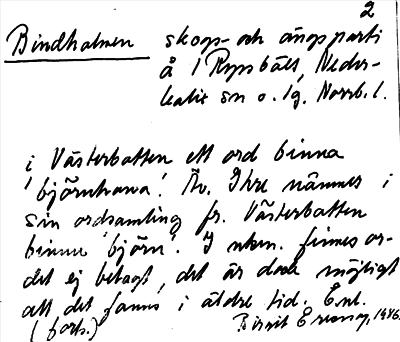 2
Bindholmen skogs- och ängsparti
å 1 Rysbält, Neder-
kalix sn o. lg. Norrb. l.
i Västerbotten ett ord binna
'björnhona'. Äv. Ihre nämner i
sin ordsamling fr. Västerbotten
binna 'björn'. I nkm. finnes or-
det ej belagt, det är dock möjligt
att det fanns i äldre tid. Enl.
(forts.) Birgit Ericson, 1946.